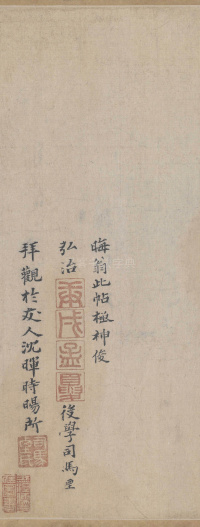 晦翁此帖極神俊
弘治庚戌孟夏後學司馬垔
拜觀於友人沈暉時暘所